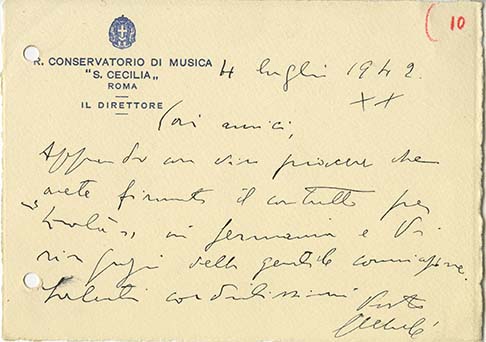 (10
R. CONSERVATORIO DI MUSICA
"S. CECILIA„
ROMA
IL DIRETTORE
4 luglio 1942
XX
Cari amici,
Apprendo con vivo piacere che
avete firmato il contratto per
in Germania e Vi
ringrazio della gentile comunicazione.
Saluti cordialissimi
Vostro